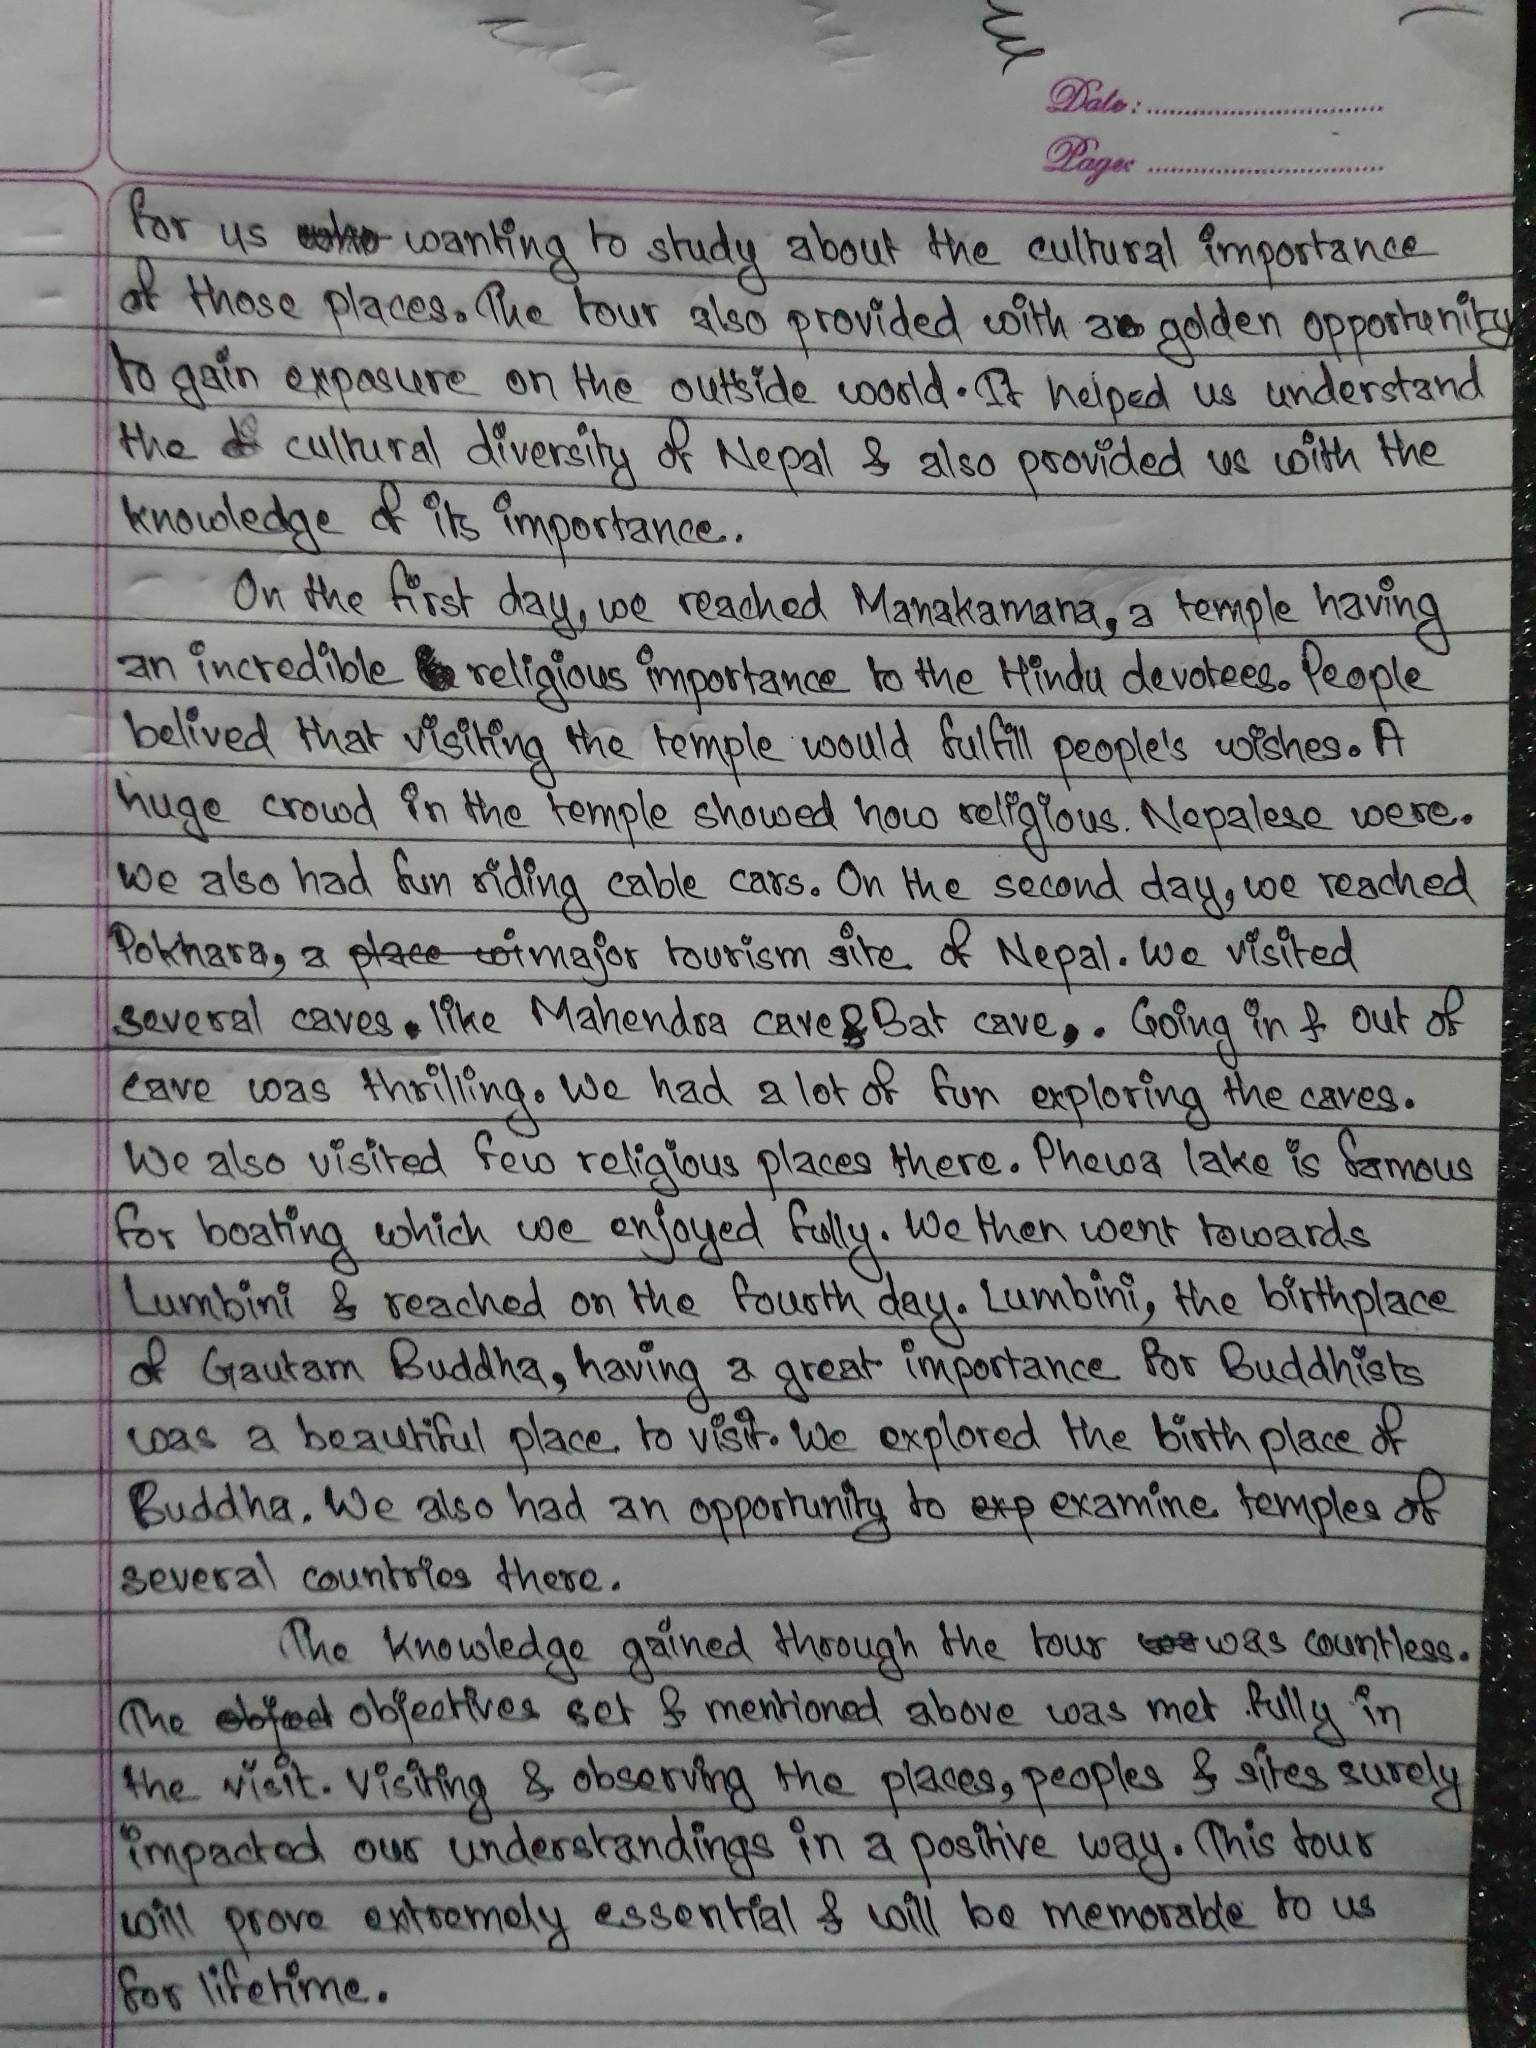 Date:
Page:
for us wanting to study about the cultural importance
of those places. The tour also provided with a golden opportunity
to gain exposure on the outside world. It helped us understand
the cultural diversity of Nepal & also provided us with the
knowledge of its importance.
On the first day, we reached Manakamana, a temple having
an incredible religious importance to the Hindu devotees. People
belived that visiting the temple would fulfill people's wishes. A
huge crowd in the temple showed how religious. Nepalese were.
We also had fun riding cable cars. On the second day, we reached
Pokhara, a place wi major tourism site of Nepal. We visited
several caves. like Mahendra cave & Bat cave,. Going in & out of
cave was thrilling. We had a lot of fun exploring the caves.
We also visited few religious places there. Phewa lake is famous
for boating which we enjoyed fully. We then went towards
Lumbini & reached on the fourth day. Lumbini, the birthplace
of Gautam Buddha, having a great importance for Buddhists
was a beautiful place to visit. We explored the birth place of
Buddha. We also had an opportunity to exp examine temples of
several countries there.
The knowledge gained through the tour was countless.
The object objectives set & mentioned above was met fully in
the visit. Visiting & observing the places, peoples & sites surely
impacted our understandings in a positive way. This tour
will prove extremely essential & will be memorable to us
for lifetime.